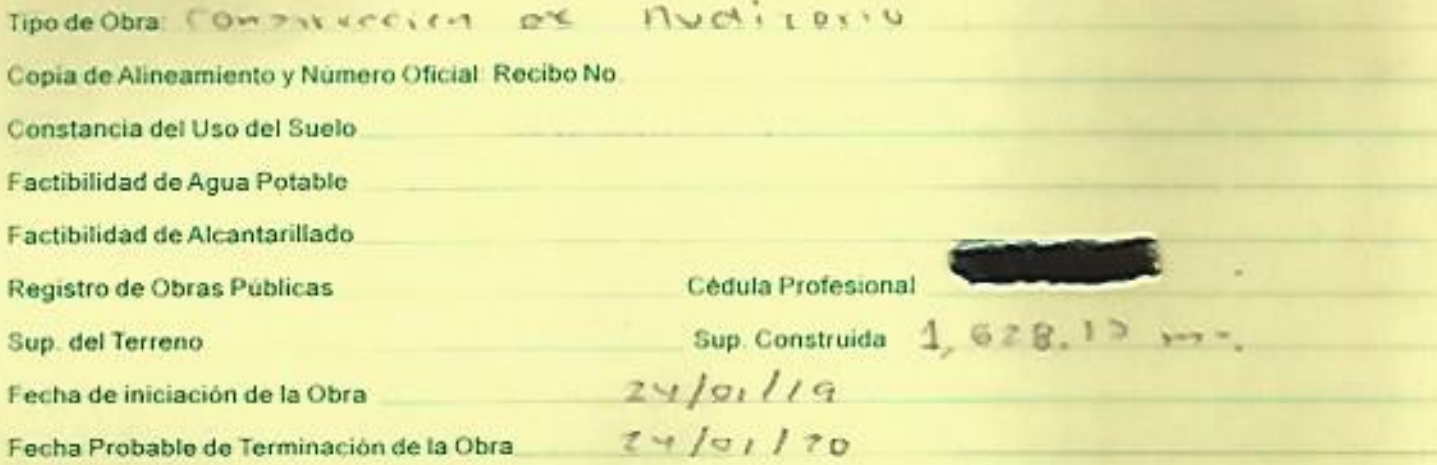 Tipo de Obra: Construccion de Auditorio
Copia de Alineamiento y Número Oficial Recibo No.
Constancia del Uso del Suelo
Factibilidad de Agua Potable
Factibilidad de Alcantarillado
Registro de Obras Públicas Cédula Profesional
Sup. del Terreno Sup. Construida 1,628.13 m².
Fecha de iniciación de la Obra 24/01/19
Fecha Probable de Terminación de la Obra 24/01/20